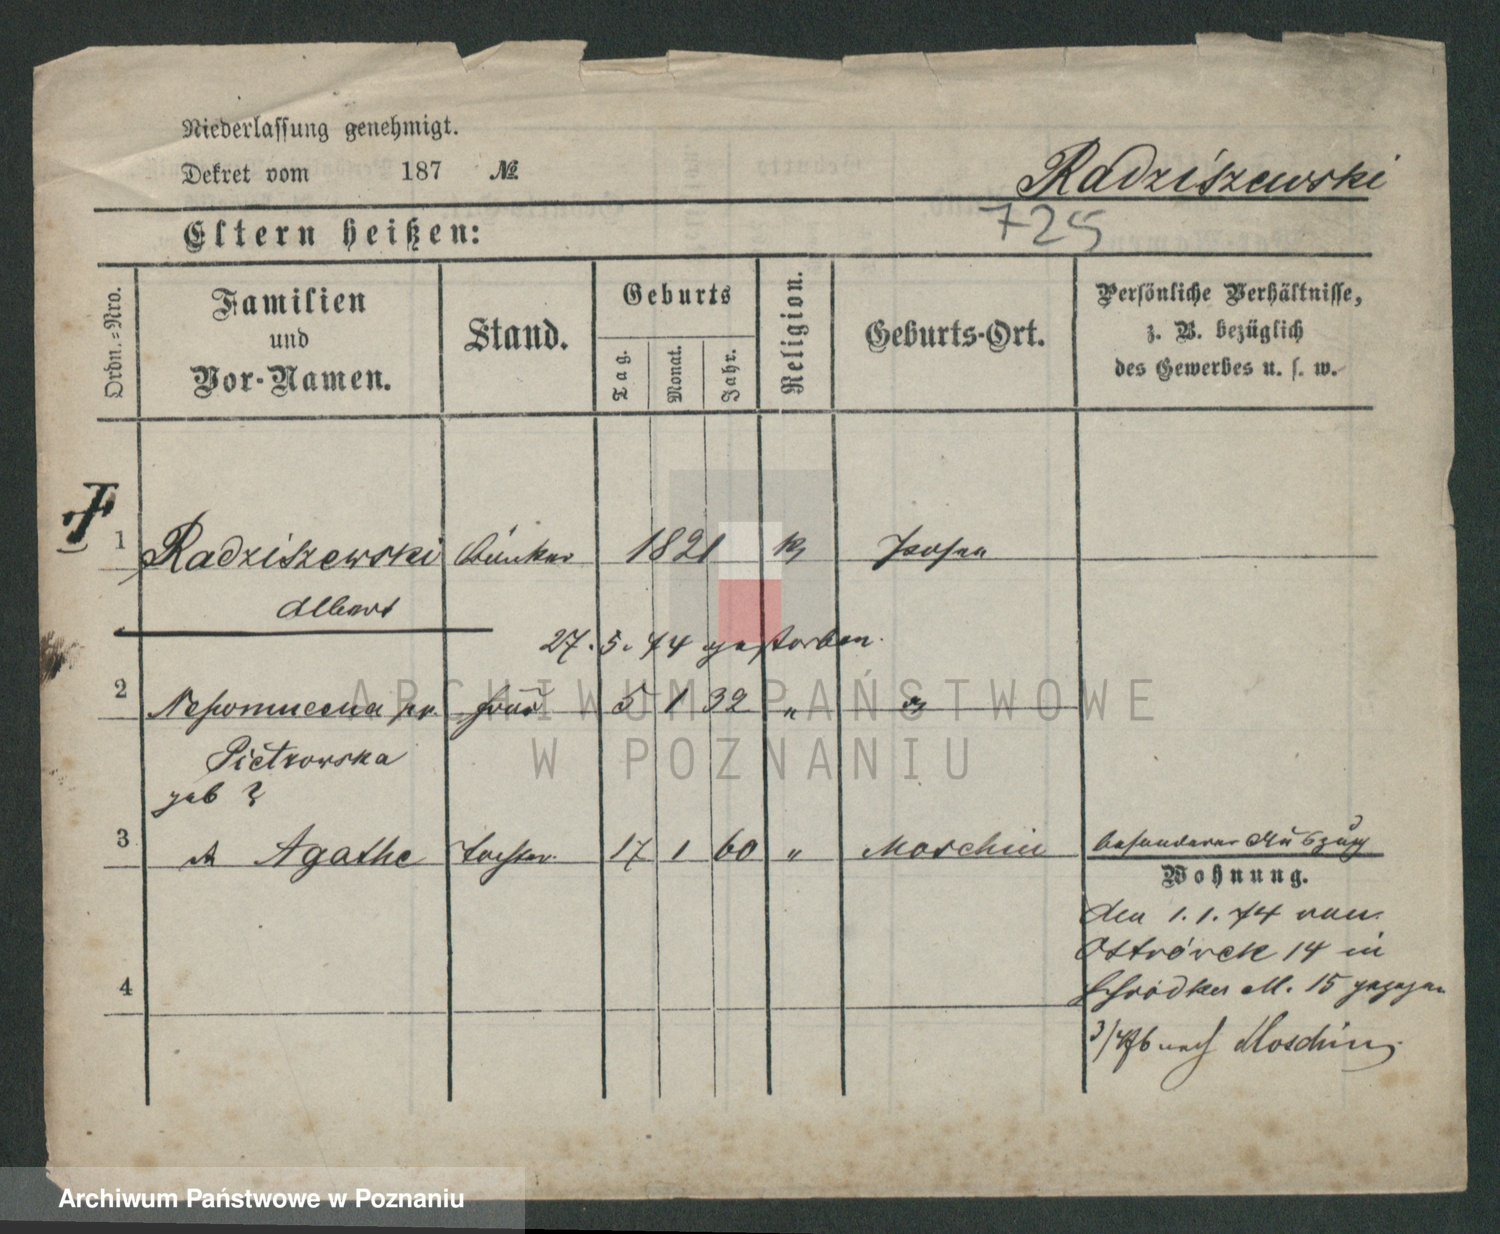 Niederlassung genehmigt.
Dekret vom 187 №
Radziszewski
725
Eltern heißen:
Ordn.=Nro.
Familien
und
Vor-Namen.
Stand.
Geburts
Tag.
Monat.
Jahr.
Religion.
Geburts-Ort.
Persönliche Verhältnisse,
z. B. bezüglich
des Gewerbes u. s. w.
1 Radziszewski 1821 Posen
Albert
27. 5. 74 gestorben.
2 Nepomucena frau 5 1 32 "
Pietrowska
geb
3 Agathe tochter. 17 1 60 " Moschin besonderer Auszug
Wohnung.
den 1. 1. 74 von
Ostrówek 14 in
Schrodker M. 15 gezogen
nach Moschin
4
ARCHIWUM PAŃSTWOWE
W POZNANIU
Archiwum Państwowe w Poznaniu